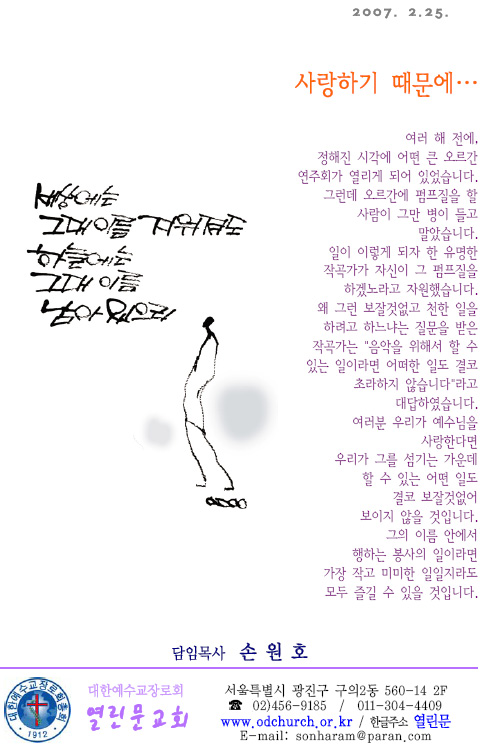 2007. 2.25.
사랑하기 때문에…
여러 해 전에,
정해진 시각에 어떤 큰 오르간
연주회가 열리게 되어 있었습니다.
그런데 오르간에 펌프질을 할
사람이 그만 병이 들고
말았습니다.
일이 이렇게 되자 한 유명한
작곡가가 자신이 그 펌프질을
하겠노라고 자원했습니다.
왜 그런 보잘것없고 천한 일을
하려고 하느냐는 질문을 받은
작곡가는 "음악을 위해서 할 수
있는 일이라면 어떠한 일도 결코
초라하지 않습니다"라고
대답하였습니다.
여러분 우리가 예수님을
사랑한다면
우리가 그를 섬기는 가운데
할 수 있는 어떤 일도
결코 보잘것없어
보이지 않을 것입니다.
그의 이름 안에서
행하는 봉사의 일이라면
가장 작고 미미한 일일지라도
모두 즐길 수 있을 것입니다.
세상에는
그대 이름 지워져도
하늘에는
그대 이름
남아 있으리
담임목사 손 원 호
대한예수교장로회총회
1912
대한예수교장로회
열린문교회
서울특별시 광진구 구의2동 560-14 2F
☎ 02)456-9185 / 011-304-4409
www.odchurch.or.kr / 한글주소 열린문
E-mail: sonharam@paran.com